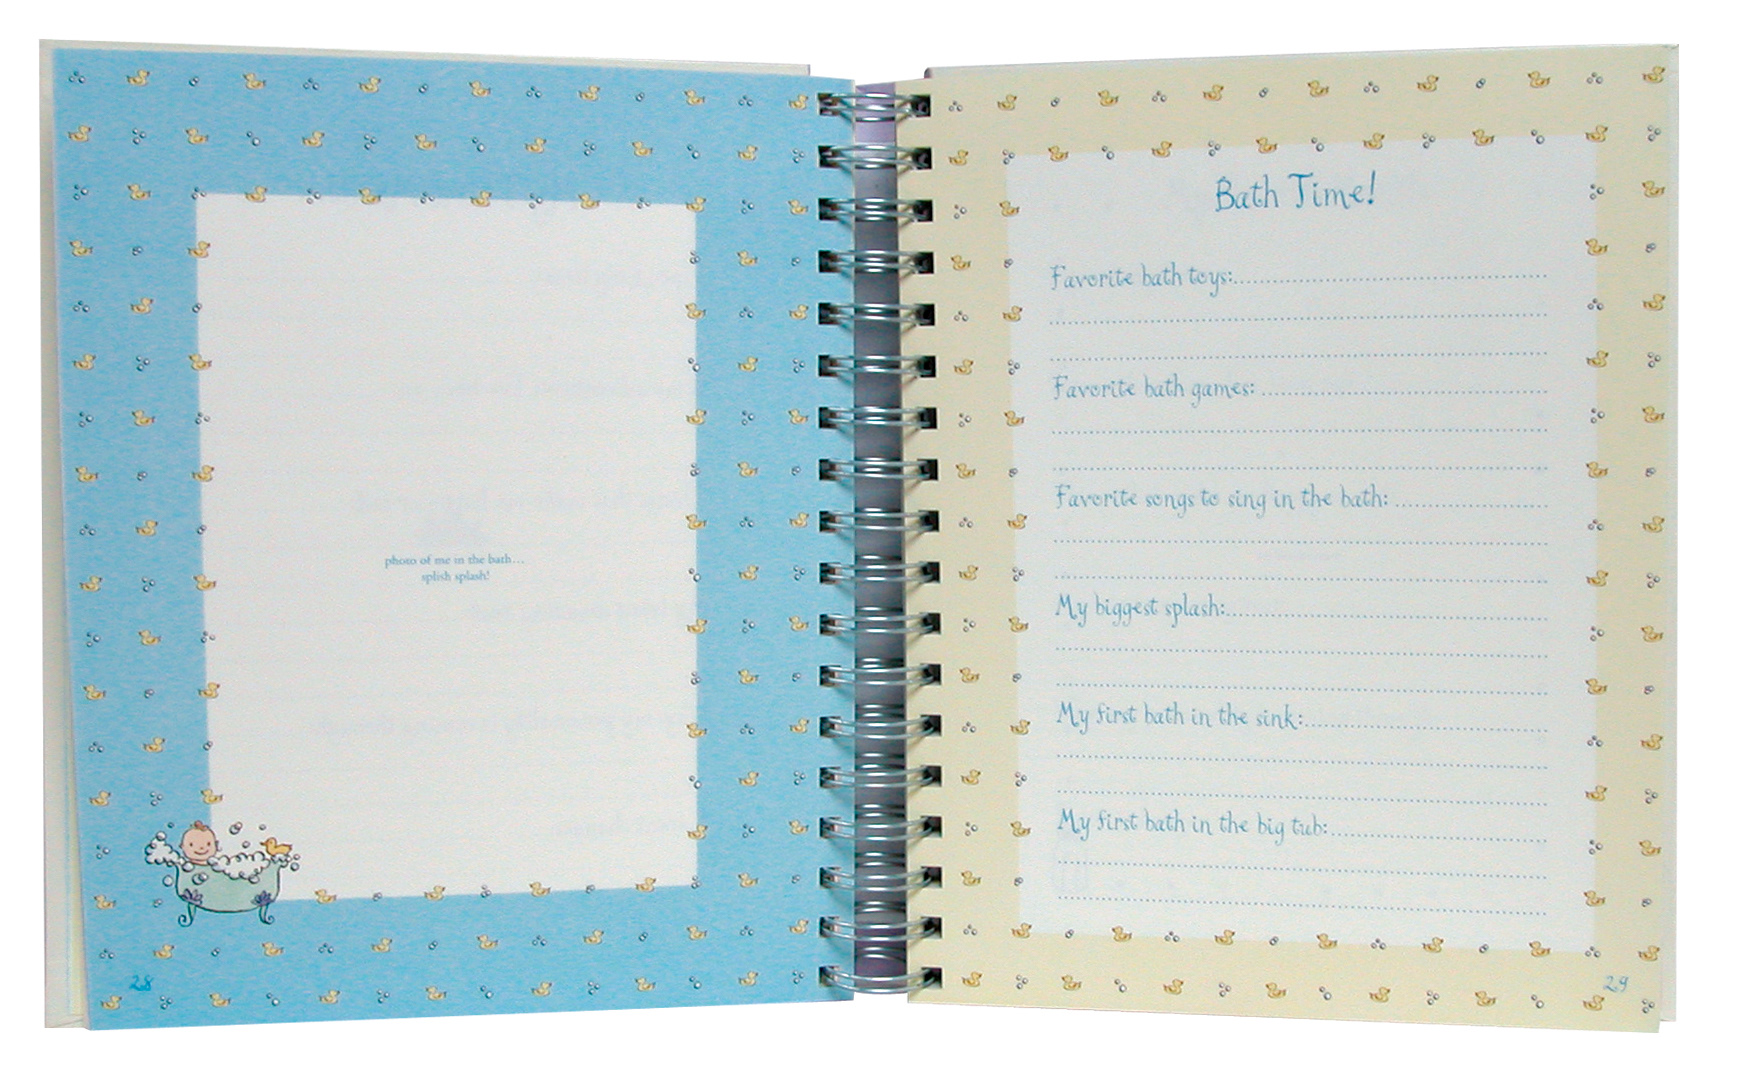 photo of me in the bath...
splish splash!
28
Bath Time!
Favorite bath toys:
Favorite bath games:
Favorite songs to sing in the bath:
My biggest splash:
My first bath in the sink:
My first bath in the big tub:
29